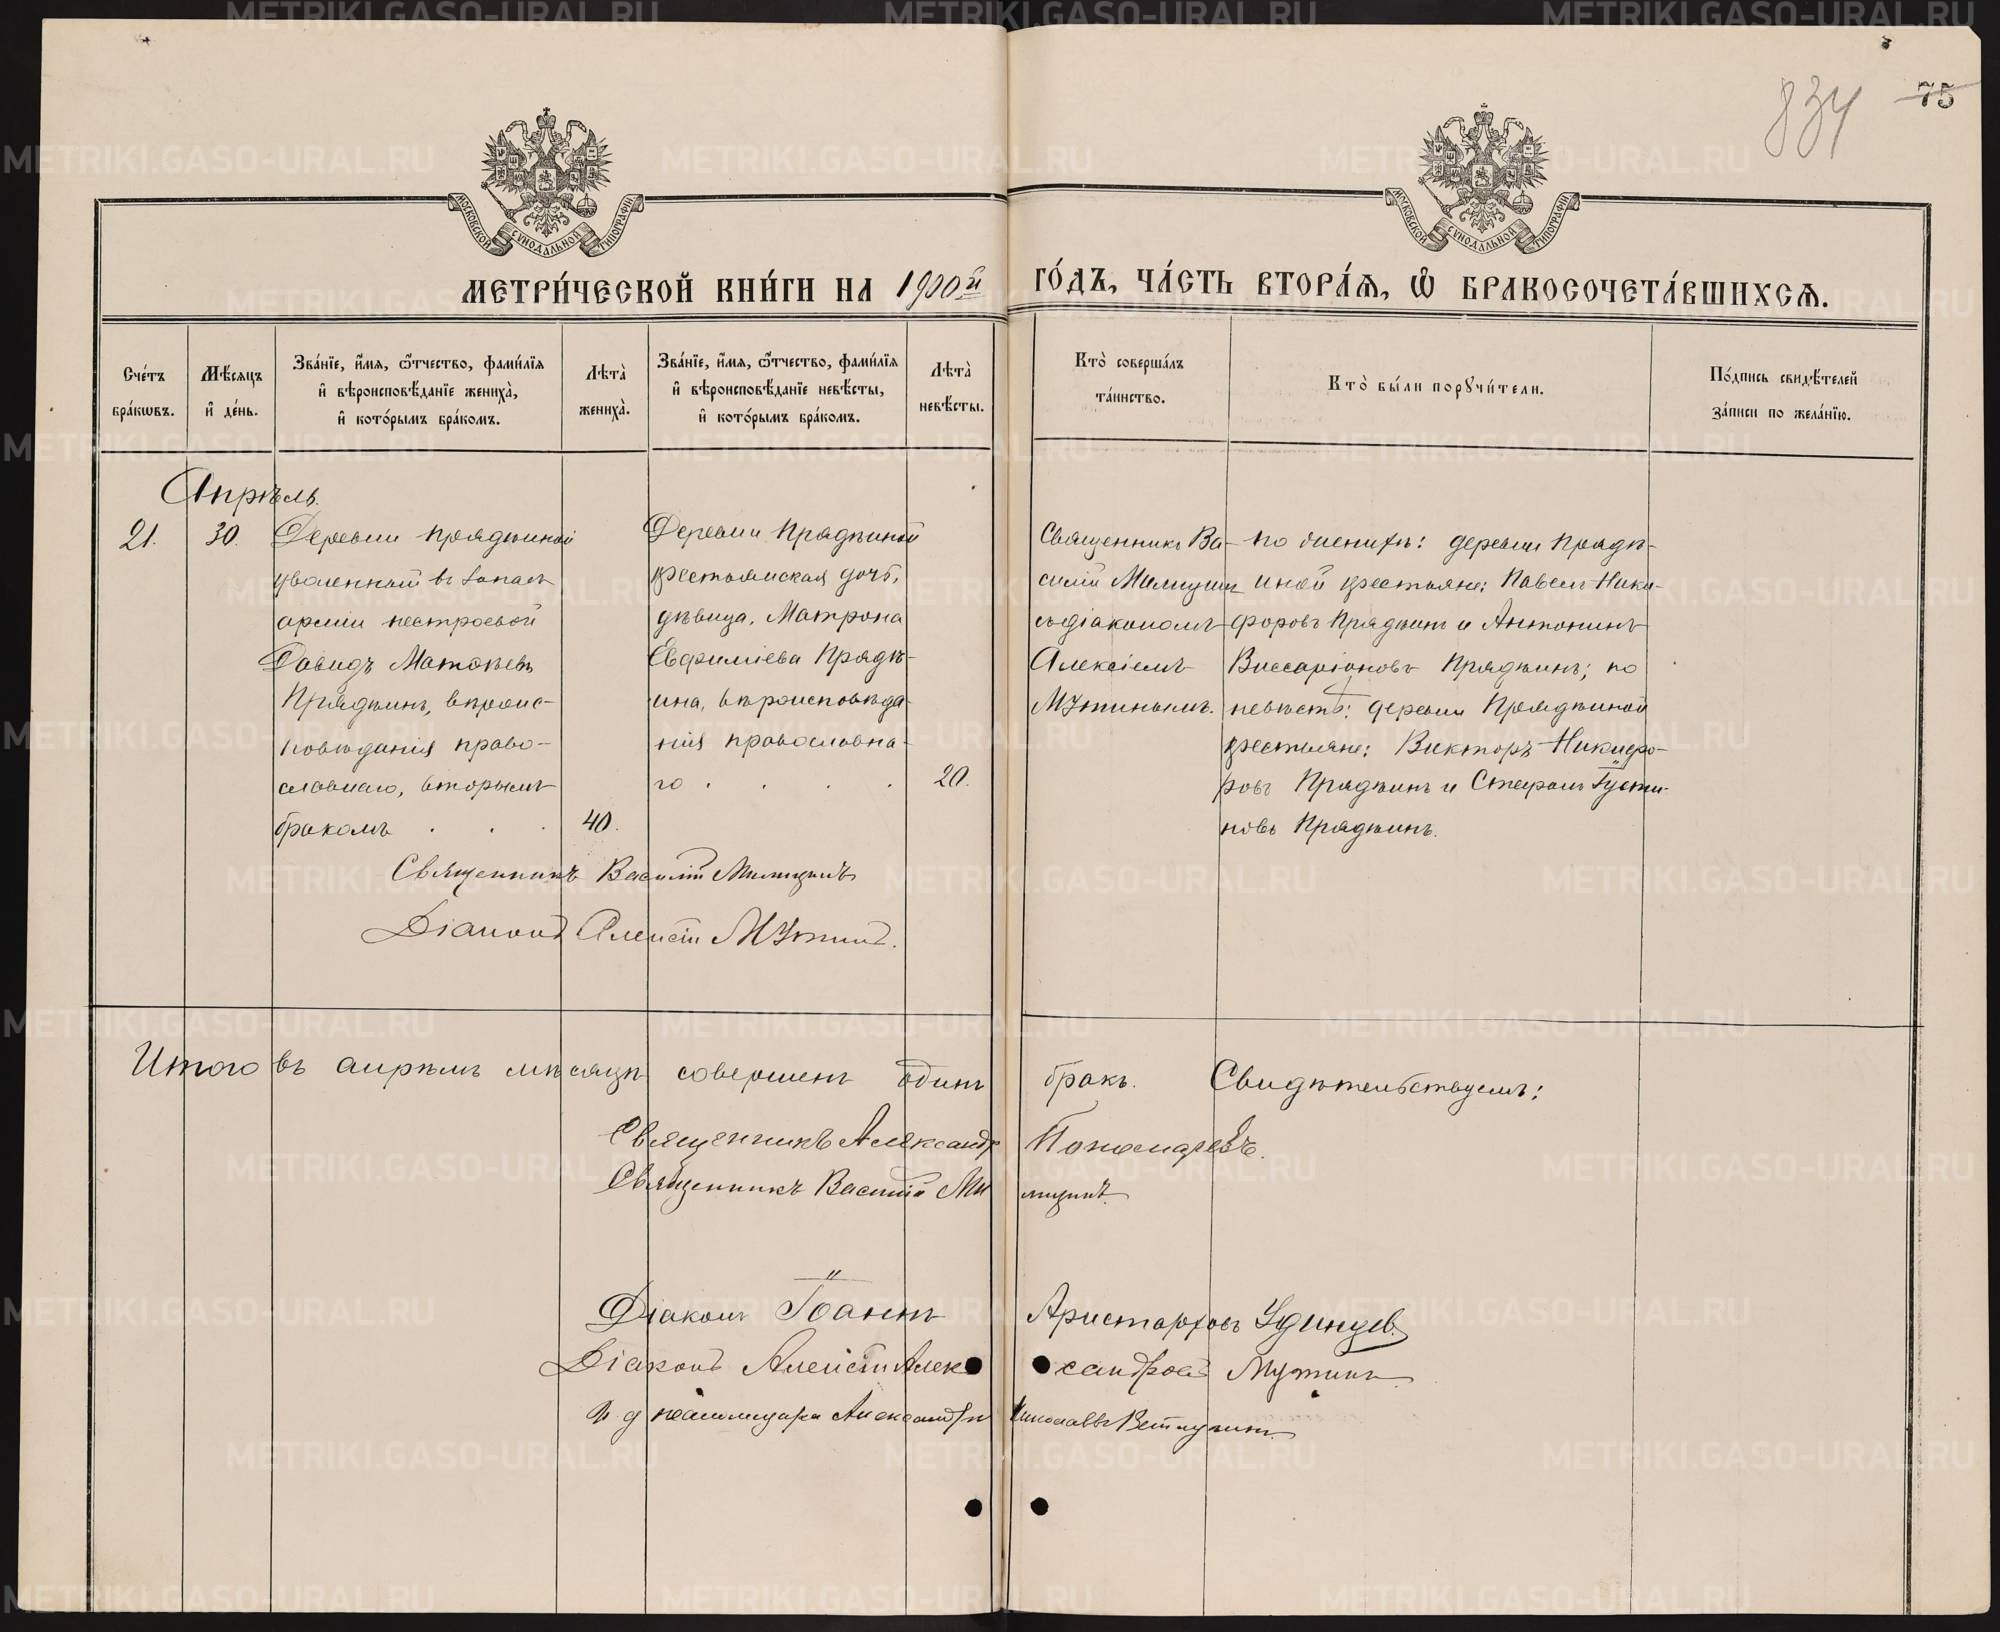 834 75
МОСКОВСКОЙ СУНОДАЛЬНОЙ ТИПОГРАФІИ
МОСКОВСКОЙ СУНОДАЛЬНОЙ ТИПОГРАФІИ
МЕТРИ́ЧЕСКОЙ КНИ́ГИ НА 1900й ГО́ДЪ, ЧА́СТЬ ВТОРА́Ѧ, Ѡ҆ БРАКОСОЧЕТА́ВШИХСѦ.
Сче́тъ бра́кѡвъ.
Мѣ́сѧцъ и҆ де́нь.
Зва́нїе, и҆́мѧ, ѻ҆́тчество, фами́лїѧ и҆ вѣроисповѣ́данїе жениха̀, и҆ кото́рымъ бра́комъ.
Лѣта̀ жениха̀.
Зва́нїе, и҆́мѧ, ѻ҆́тчество, фами́лїѧ и҆ вѣроисповѣ́данїе невѣ́сты, и҆ кото́рымъ бра́комъ.
Лѣта̀ невѣ́сты.
Кто̀ соверша́лъ та́инство.
Кто̀ бы́ли порꙋчи́тели.
По́дпись свидѣ́телей за́писи по жела́нїю.
Апрѣль.
21.
30.
Деревни Прядѣиной
уволенный въ запасъ
арміи нестроевой
Давидъ Матѳѣевъ
Прядѣинъ, вѣроис-
повѣданія право-
славнаго, вторымъ
бракомъ . . .
40.
Деревни Прядѣиной
крестьянская дочь,
дѣвица, Матрона
Евфиміева Прядѣ-
ина, вѣроисповѣда-
нія православна-
го . . . .
20.
Священникъ Ва-
силій Милицынъ
съ діакономъ
Алексіемъ
Мутинымъ.
по женихѣ: деревни Прядѣ-
иной крестьяне: Павелъ Ники-
форовъ Прядѣинъ и Антонинъ
Виссаріоновъ Прядѣинъ; по
невѣстѣ: деревни Прядѣиной
крестьяне: Викторъ Никифо-
ровъ Прядѣинъ и Стефанъ Густи-
новъ Прядѣинъ.
Священникъ Василій Милицынъ
Діаконъ Алексій Мутинъ.
Итого въ апрѣлѣ мѣсяцѣ совершенъ одинъ бракъ. Свидѣтельствуемъ:
Священникъ Александръ Пономаревъ.
Священникъ Василій Милицынъ.
Діаконъ Іоаннъ Аристарховъ Удинцев.
Діаконъ Алексій Александровъ Мутинъ
И. д. псаломщика Александръ Николаевъ Ветлугинъ.
METRIKI.GASO-URAL.RU